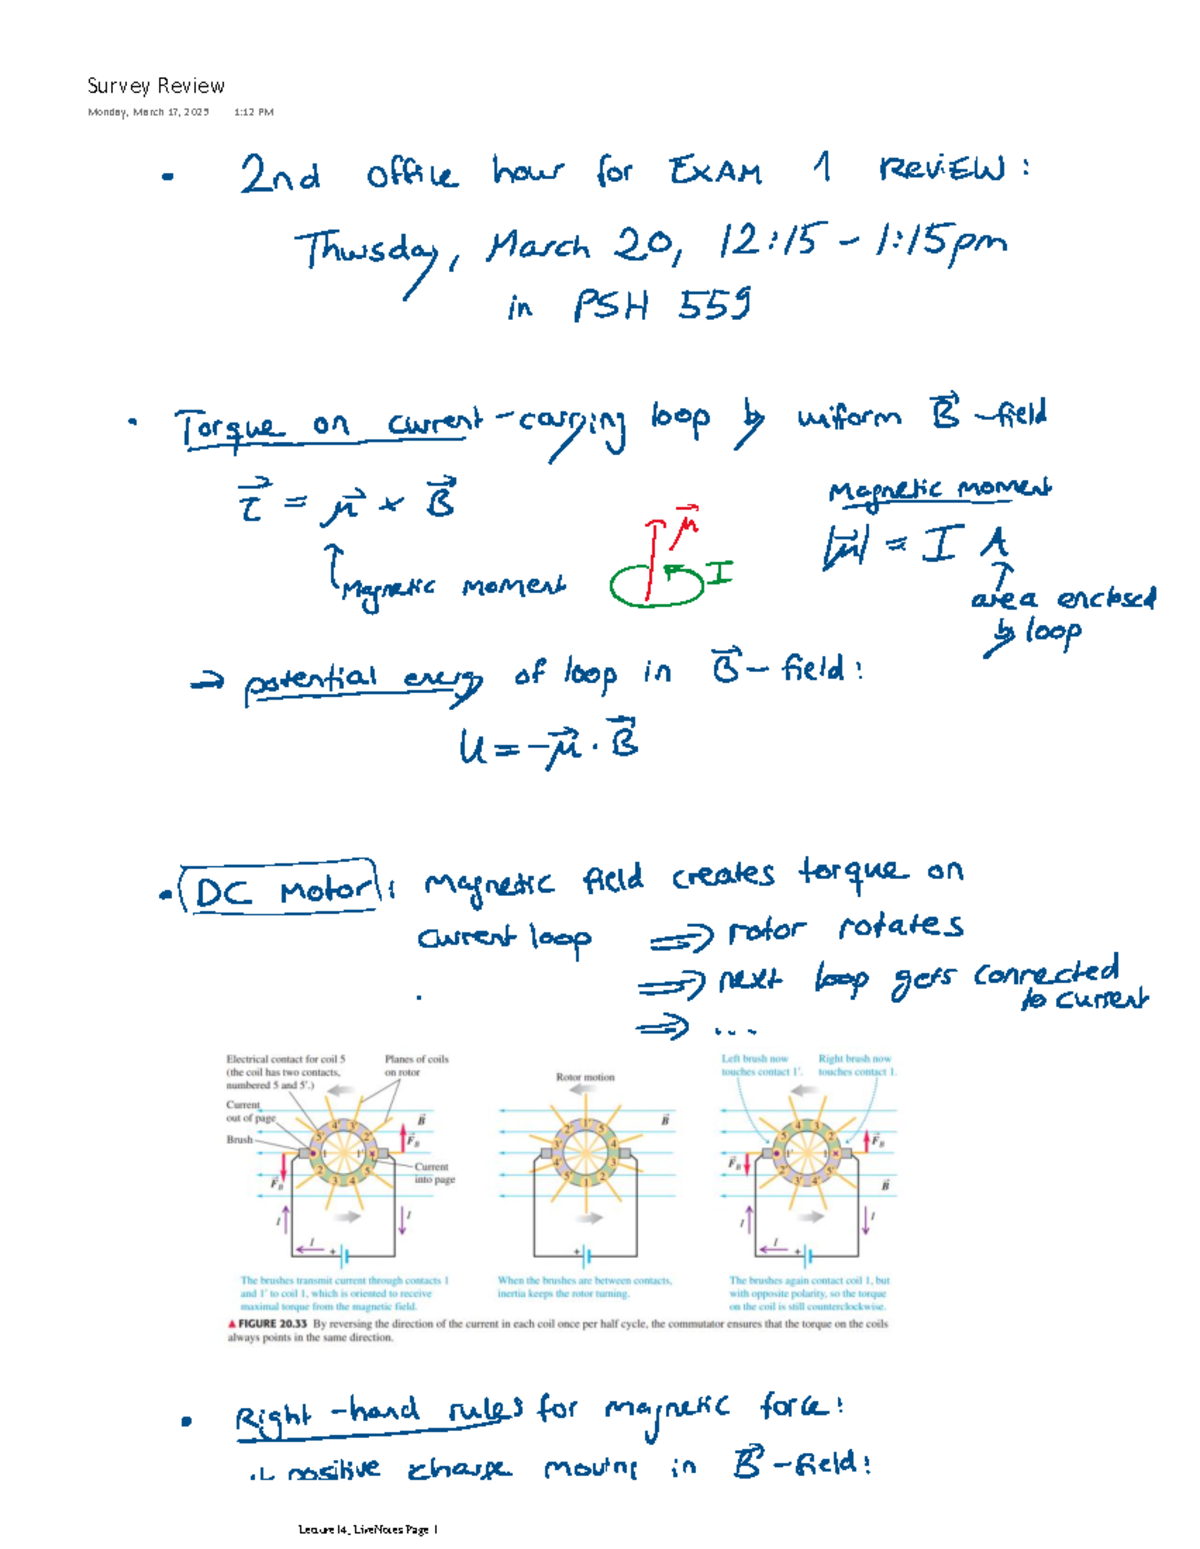 Survey Review
Monday, March 17, 2025 1:12 PM
• 2nd office hour for EXAM 1 REVIEW:
Thursday, March 20, 12:15 - 1:15pm
in PSH 559
• Torque on current-carrying loop by uniform B⃗-field
τ⃗ = μ⃗ × B⃗
↑ Magnetic moment
μ⃗
I
Magnetic moment
|μ⃗| = I A
↑
area enclosed
by loop
→ potential energy of loop in B⃗-field:
U = -μ⃗ · B⃗
• DC Motor: magnetic field creates torque on
current loop ⇒ rotor rotates
⇒ next loop gets connected
to current
⇒ ...
Electrical contact for coil 5
(the coil has two contacts,
numbered 5 and 5'.)
Planes of coils
on rotor
Current
out of page
Brush
B⃗
F⃗B
Current
into page
F⃗B
I
I
I
+
The brushes transmit current through contacts 1
and 1' to coil 1, which is oriented to receive
maximal torque from the magnetic field.
Rotor motion
B⃗
+
When the brushes are between contacts,
inertia keeps the rotor turning.
Left brush now
touches contact 1'.
Right brush now
touches contact 1.
F⃗B
F⃗B
B⃗
I
I
I
+
The brushes again contact coil 1, but
with opposite polarity, so the torque
on the coil is still counterclockwise.
▲ FIGURE 20.33 By reversing the direction of the current in each coil once per half cycle, the commutator ensures that the torque on the coils
always points in the same direction.
• Right-hand rules for magnetic force:
positive charge moving in B⃗-field:
Lecture 14, LiveNotes Page 1